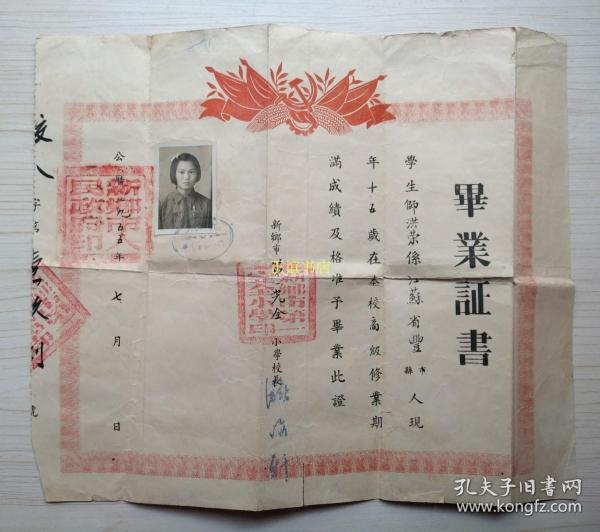 畢業証書
學生師洪荣係江蘇省豐市縣人現
年十五歲在本校高級修業期
滿成績及格准予畢業此證
新鄉市第一完全小學校長
公曆一九五五年七月日
字第
號
新鄉市人民政府印
孔夫子旧书网
www.kongfz.com